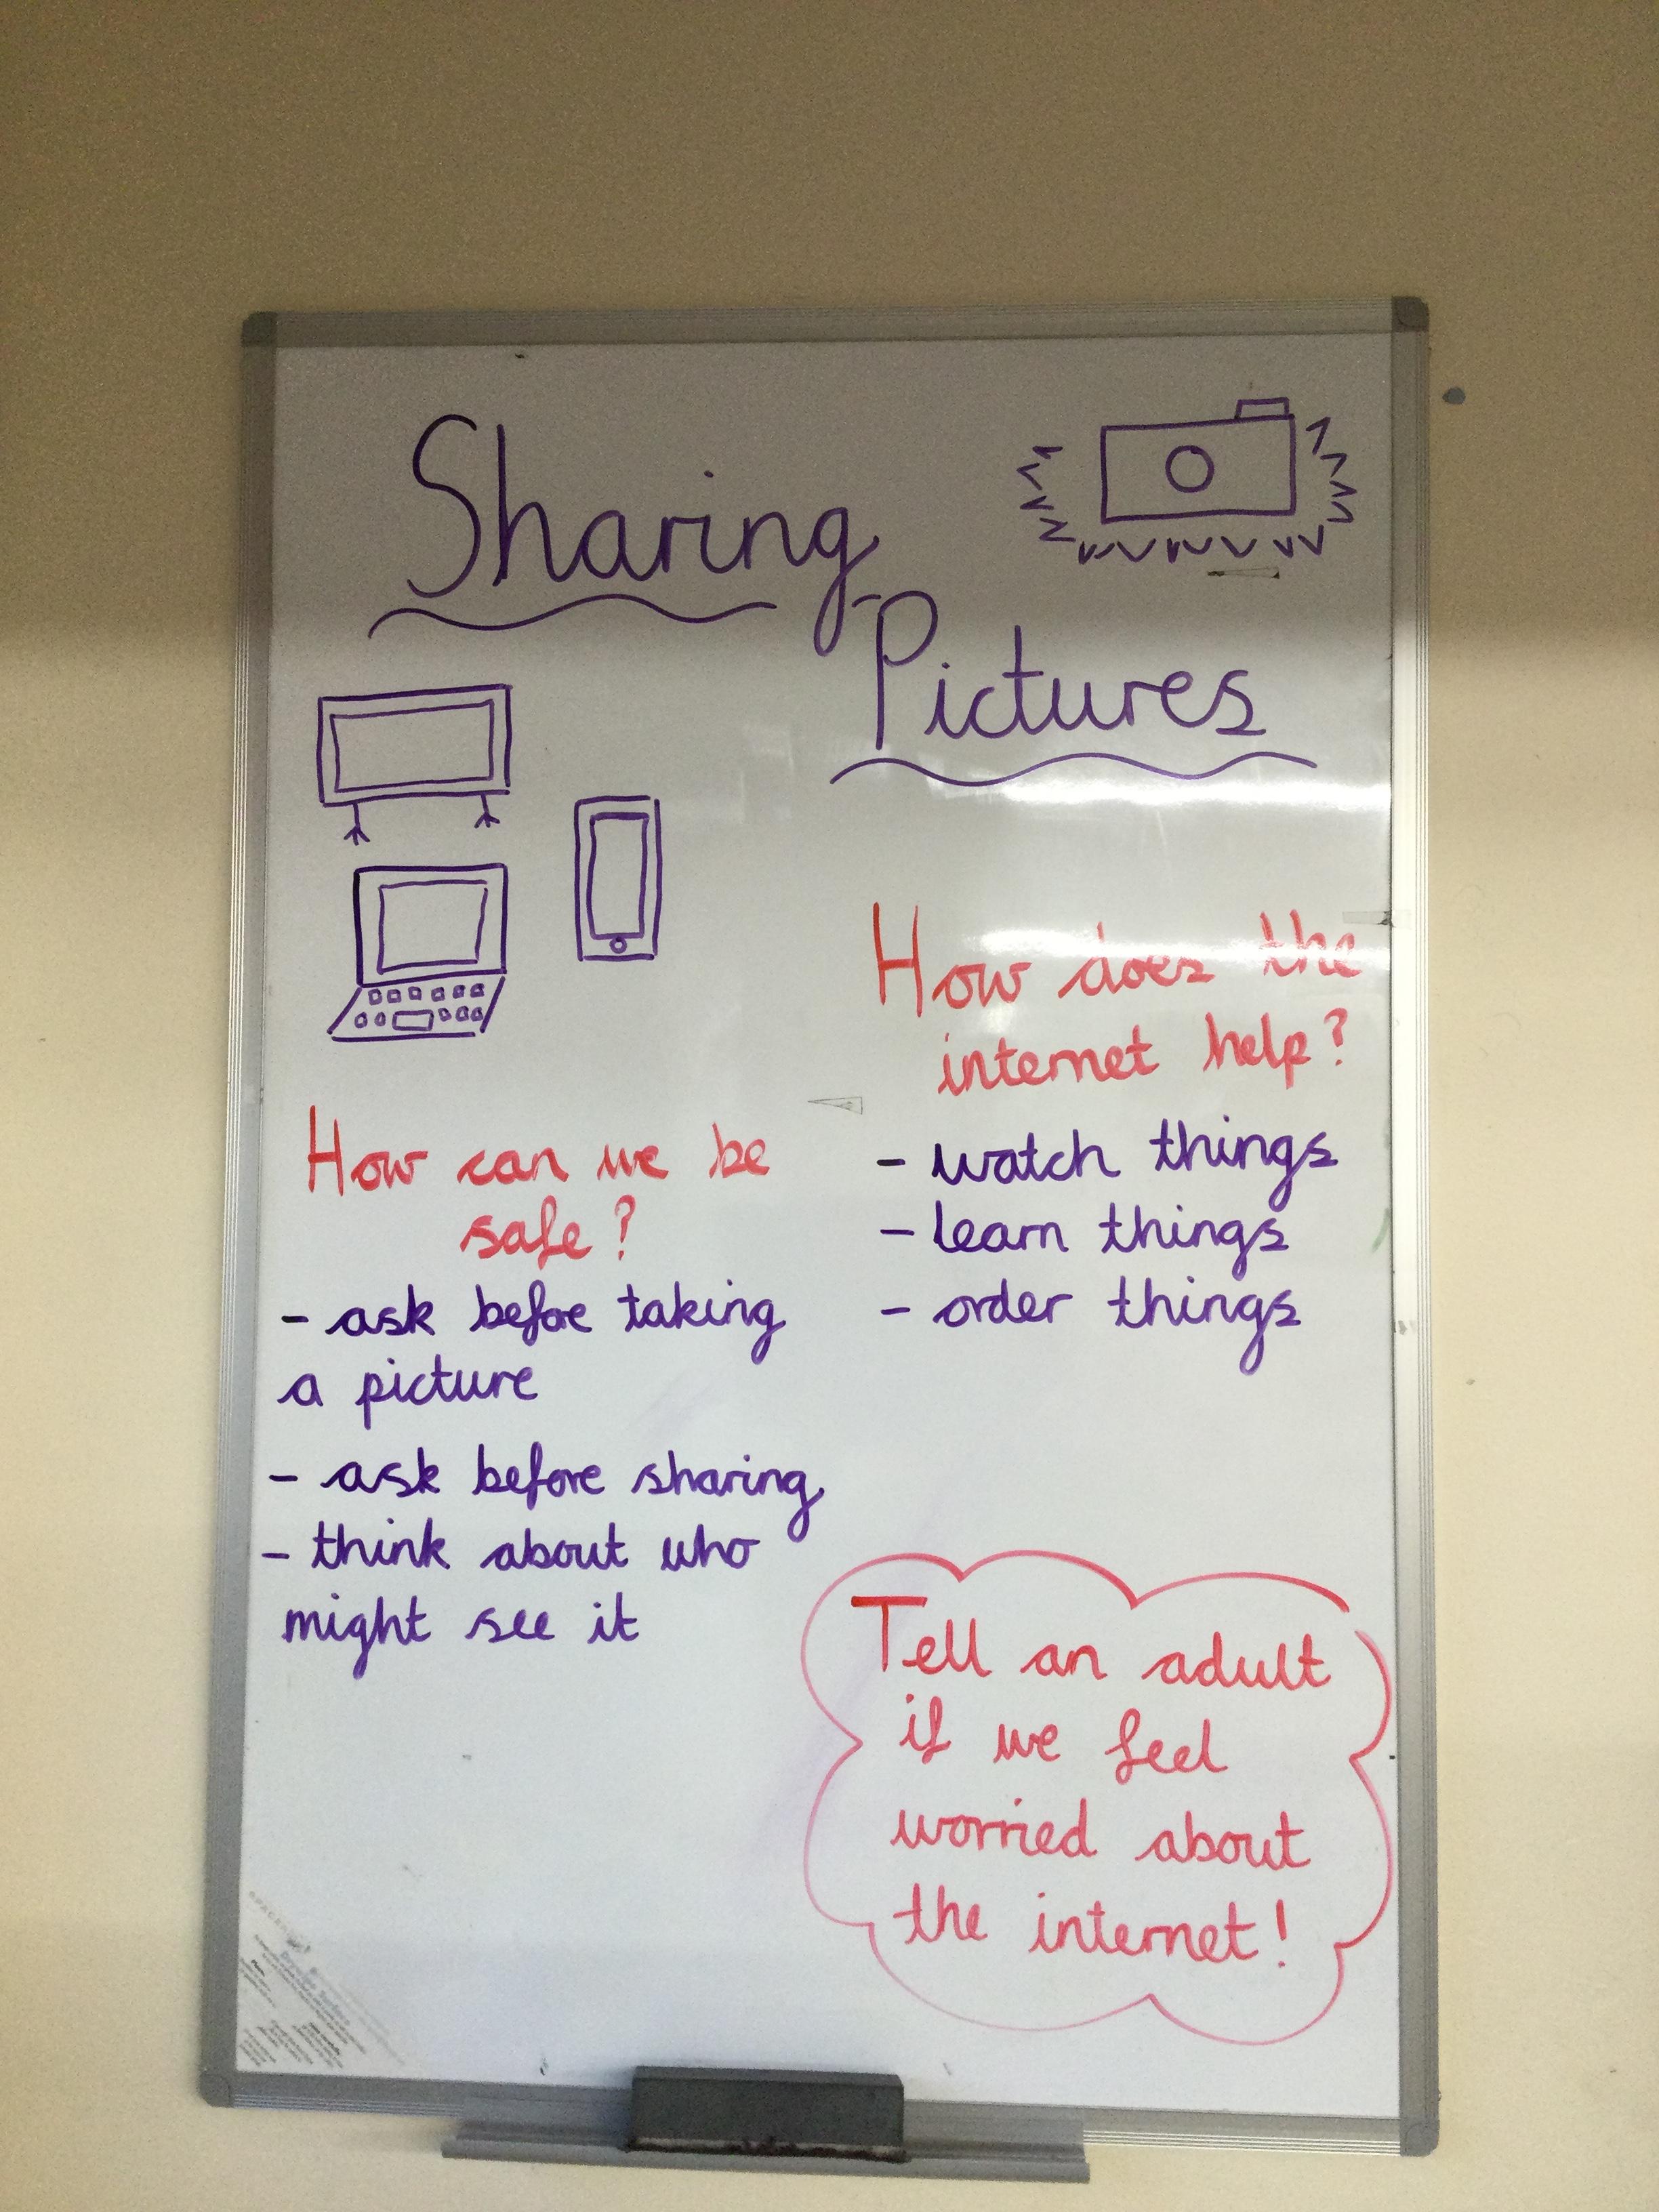 Sharing
Pictures
How does the
internet help?
- watch things
- learn things
- order things
How can we be
safe?
- ask before taking
a picture
- ask before sharing
- think about who
might see it
Tell an adult
if we feel
worried about
the internet!